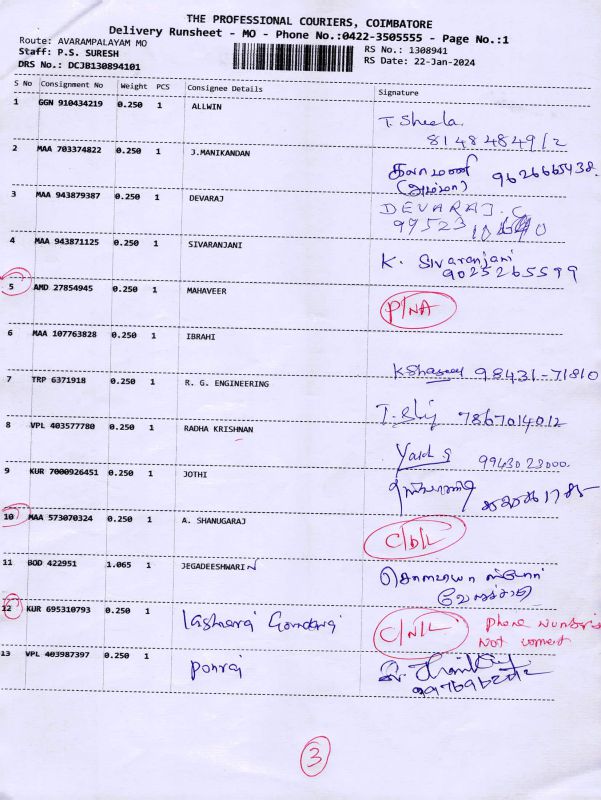 THE PROFESSIONAL COURIERS, COIMBATORE
Delivery Runsheet - MO - Phone No.:0422-3505555 - Page No.:1
Route: AVARAMPALAYAM MO
Staff: P.S. SURESH
DRS No.: DCJB130894101
RS No.: 1308941
RS Date: 22-Jan-2024
S No Consignment No Weight PCS Consignee Details Signature
1 GGN 910434219 0.250 1 ALLWIN
T. Sheela
8148484912
2 MAA 703374822 0.250 1 J.MANIKANDAN
கலாமணி 9626665438.
(அம்மா)
3 MAA 943879387 0.250 1 DEVARAJ
DEVARAJ. C
99523
4 MAA 943871125 0.250 1 SIVARANJANI
K. Sivaranjani
9025265599
5 AMD 27854945 0.250 1 MAHAVEER
P/NA
6 MAA 107763828 0.250 1 IBRAHI
98431-71810
7 TRP 6371918 0.250 1 R. G. ENGINEERING
7867014012
8 VPL 403577780 0.250 1 RADHA KRISHNAN
9943023000.
9 KUR 7000926451 0.250 1 JOTHI
10 MAA 573070324 0.250 1 A. SHANUGARAJ
C/D/L
11 BOD 422951 1.065 1 JEGADEESHWARIN
12 KUR 695310793 0.250 1
C/N/L phone number is
Not correct
13 VPL 403987397 0.250 1 ponraj
3